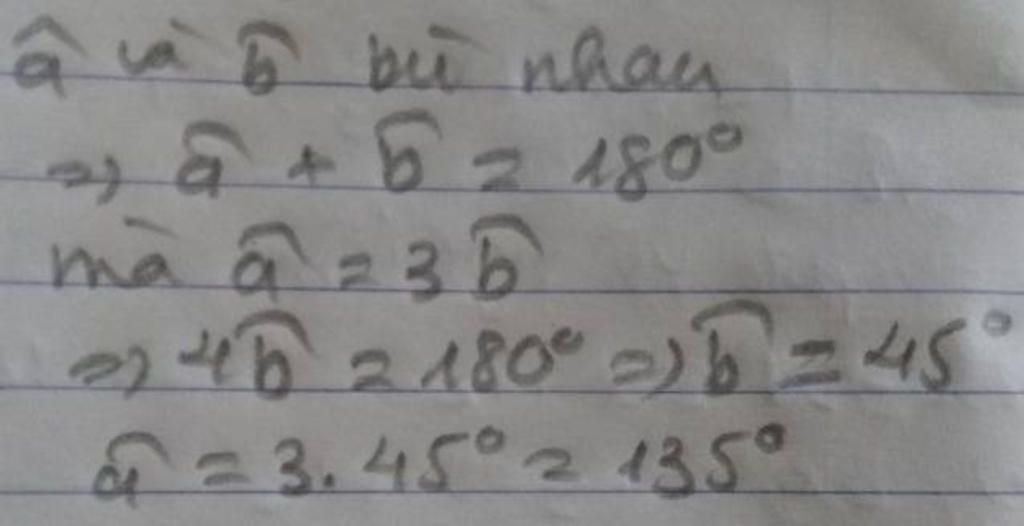 â và b̂ bù nhau
=> â + b̂ = 180°
mà â = 3b̂
=> 4b̂ = 180° => b̂ = 45°
â = 3. 45° = 135°